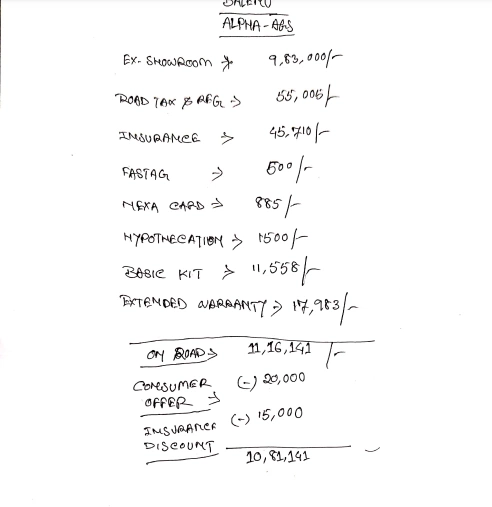 BALENO
ALPHA-AGS
EX-SHOWROOM → 9,83,000/-
ROAD TAX & REG → 55,006/-
INSURANCE → 45,710/-
FASTAG → 500/-
NEXA CARD → 885/-
HYPOTHECATION → 1500/-
BASIC KIT → 11,558/-
EXTENDED WARRANTY → 17,983/-
ON ROAD → 11,16,141 /-
CONSUMER (-) 20,000
OFFER →
INSURANCE (-) 15,000
DISCOUNT
10,81,141